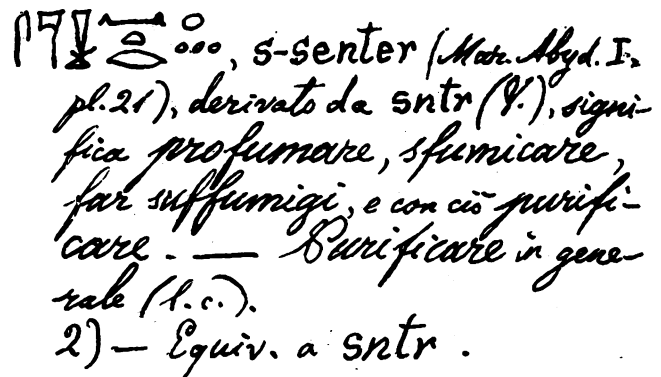 𓋴𓊹𓍿𓈖𓏏𓂋𓈒𓏥, s-senter (Mar. Abyd. I,
pl. 21), derivato da sntr (V.), signi-
fica profumare, sfumicare,
far suffumigi, e con ciò purifi-
care. — Purificare in gene-
rale (l.c.).
2) — Equiv. a sntr.